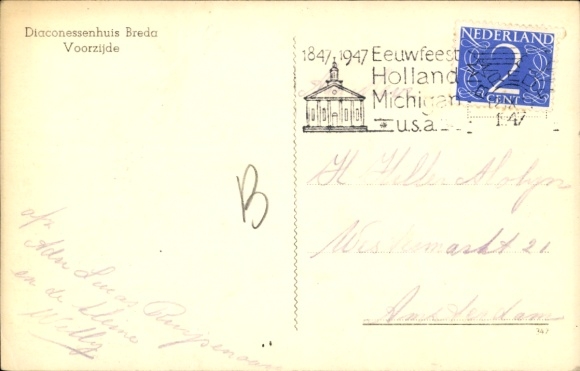 Diaconessenhuis Breda
Voorzijde
1847 1947 Eeuwfeest
Holland
Michigan
u.s.a
NEDERLAND
2
CENT
1.47
B
H
Westermarkt 21
Amsterdam
347
Adr. Lucas
en de kleine
Willy